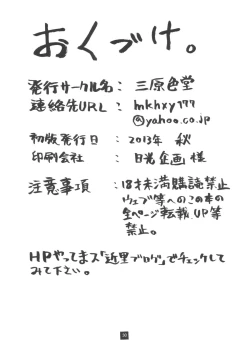 おくづけ。
発行サークル名：三原色堂
連絡先URL：mkhxy177
@yahoo.co.jp
初版発行日：2013年 秋
印刷会社：日光企画 様
注意事項：18才未満購読禁止
ウェブ等へのこの本の
全ページ転載、UP等
禁止。
HPやってまス「近里ブログ」でチェックして
みて下さい。